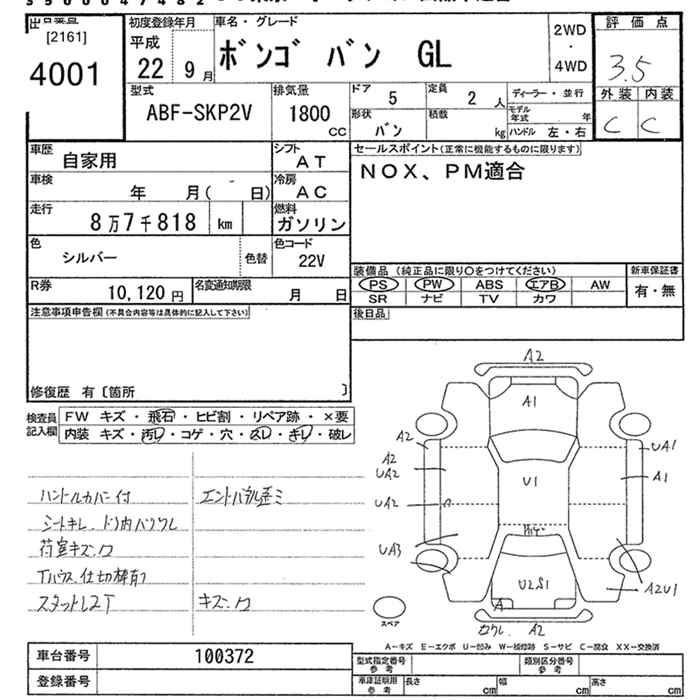 出品番号
[2161]
4001
初度登録年月
平成
22 9 月
車名・グレード
ボンゴ バン GL
2WD
・
4WD
評 価 点
3.5
外 装 内 装
C C
型式
ABF-SKP2V
排気量
1800
CC
ドア 5
定員 2 人
ディーラー・並行
形状 バン
積載 kg
モデル年式 年
ハンドル 左・右
車歴 自家用
シフト AT
セールスポイント(正常に機能するものに限ります)
NOX、PM適合
車検 年 月( - 日)
冷房 AC
走行 8万7千818 km
燃料 ガソリン
色 シルバー 色替
色コード 22V
装備品 (純正品に限り○をつけてください)
新車保証書
PS PW ABS エアB AW
有・無
SR ナビ TV カワ
R券 10,120 円
名変通知期限 月 日
後日品
注意事項申告欄(不具合内容等は具体的に記入して下さい)
修復歴 有〔箇所 〕
検査員記入欄
FW キズ・飛石・ヒビ割・リペア跡・×要
内装 キズ・汚レ・コゲ・穴・スレ・キレ・破レ
ハンドルカバー付
シートキレ
荷室キズ
キズ
A2
A1
A2
A2
UA2
UA2
UA3
U1
UA1
A1
A2U1
U2S1
A
A2
スペア
A-キズ E-エクボ U-凹み W-補修跡 S-サビ C-腐食 XX-交換済
車台番号 100372
登録番号
型式指定番号 参考
類別区分番号 参考
車庫証明用 参考
長さ cm 幅 cm 高さ cm